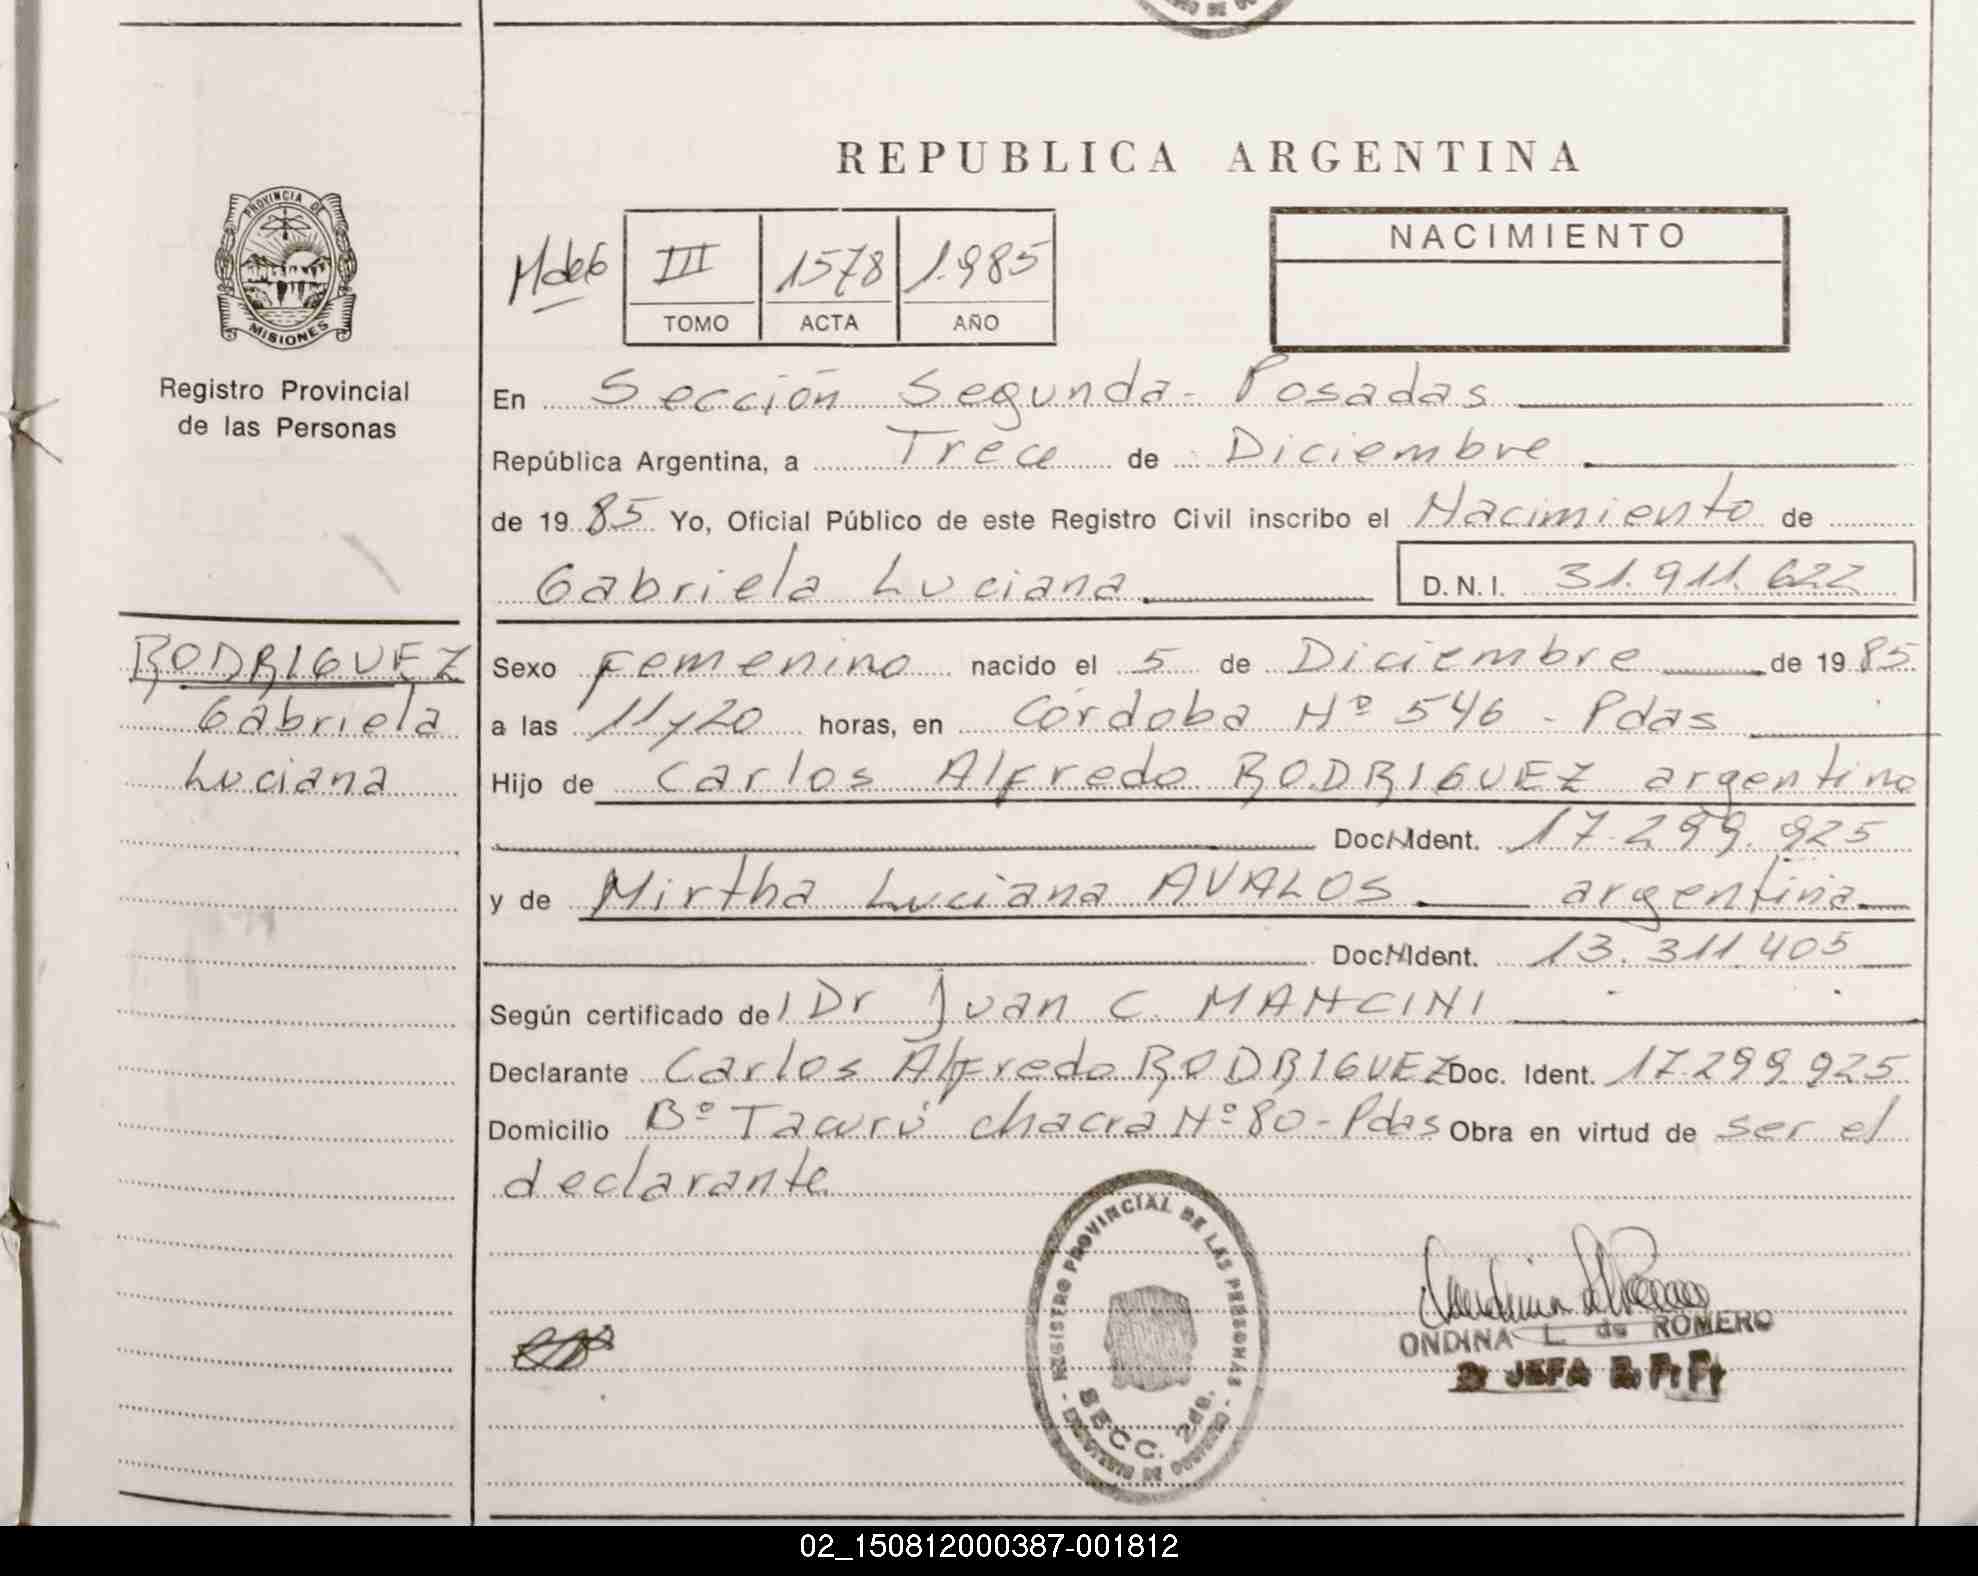 REPUBLICA ARGENTINA
PROVINCIA DE
MISIONES
Registro Provincial
de las Personas
III 1578 1.985
TOMO ACTA AÑO
NACIMIENTO
En Sección Segunda - Posadas
República Argentina, a Trece de Diciembre
de 19 85 Yo, Oficial Público de este Registro Civil inscribo el Nacimiento de
Gabriela Luciana D.N.I. 31.911.622
RODRIGUEZ
Gabriela
Luciana
Sexo Femenino nacido el 5 de Diciembre de 19 85
a las 11 y 20 horas, en Córdoba Nº 546 - Pdas
Hijo de Carlos Alfredo RODRIGUEZ argentino
Doc. Ident. 17.299.925
y de Mirtha Luciana AVALOS argentina
Doc. Ident. 13.311.405
Según certificado del Dr Juan C. MANCINI
Declarante Carlos Alfredo RODRIGUEZ Doc. Ident. 17.299.925
Domicilio Bº Tacurú chacra Nº 80 - Pdas Obra en virtud de ser el
declarante
REGISTRO PROVINCIAL DE LAS PERSONAS
SECC. 2da.
MINISTERIO DE GOBIERNO
ONDINA L. de ROMERO
JEFA
02_150812000387-001812